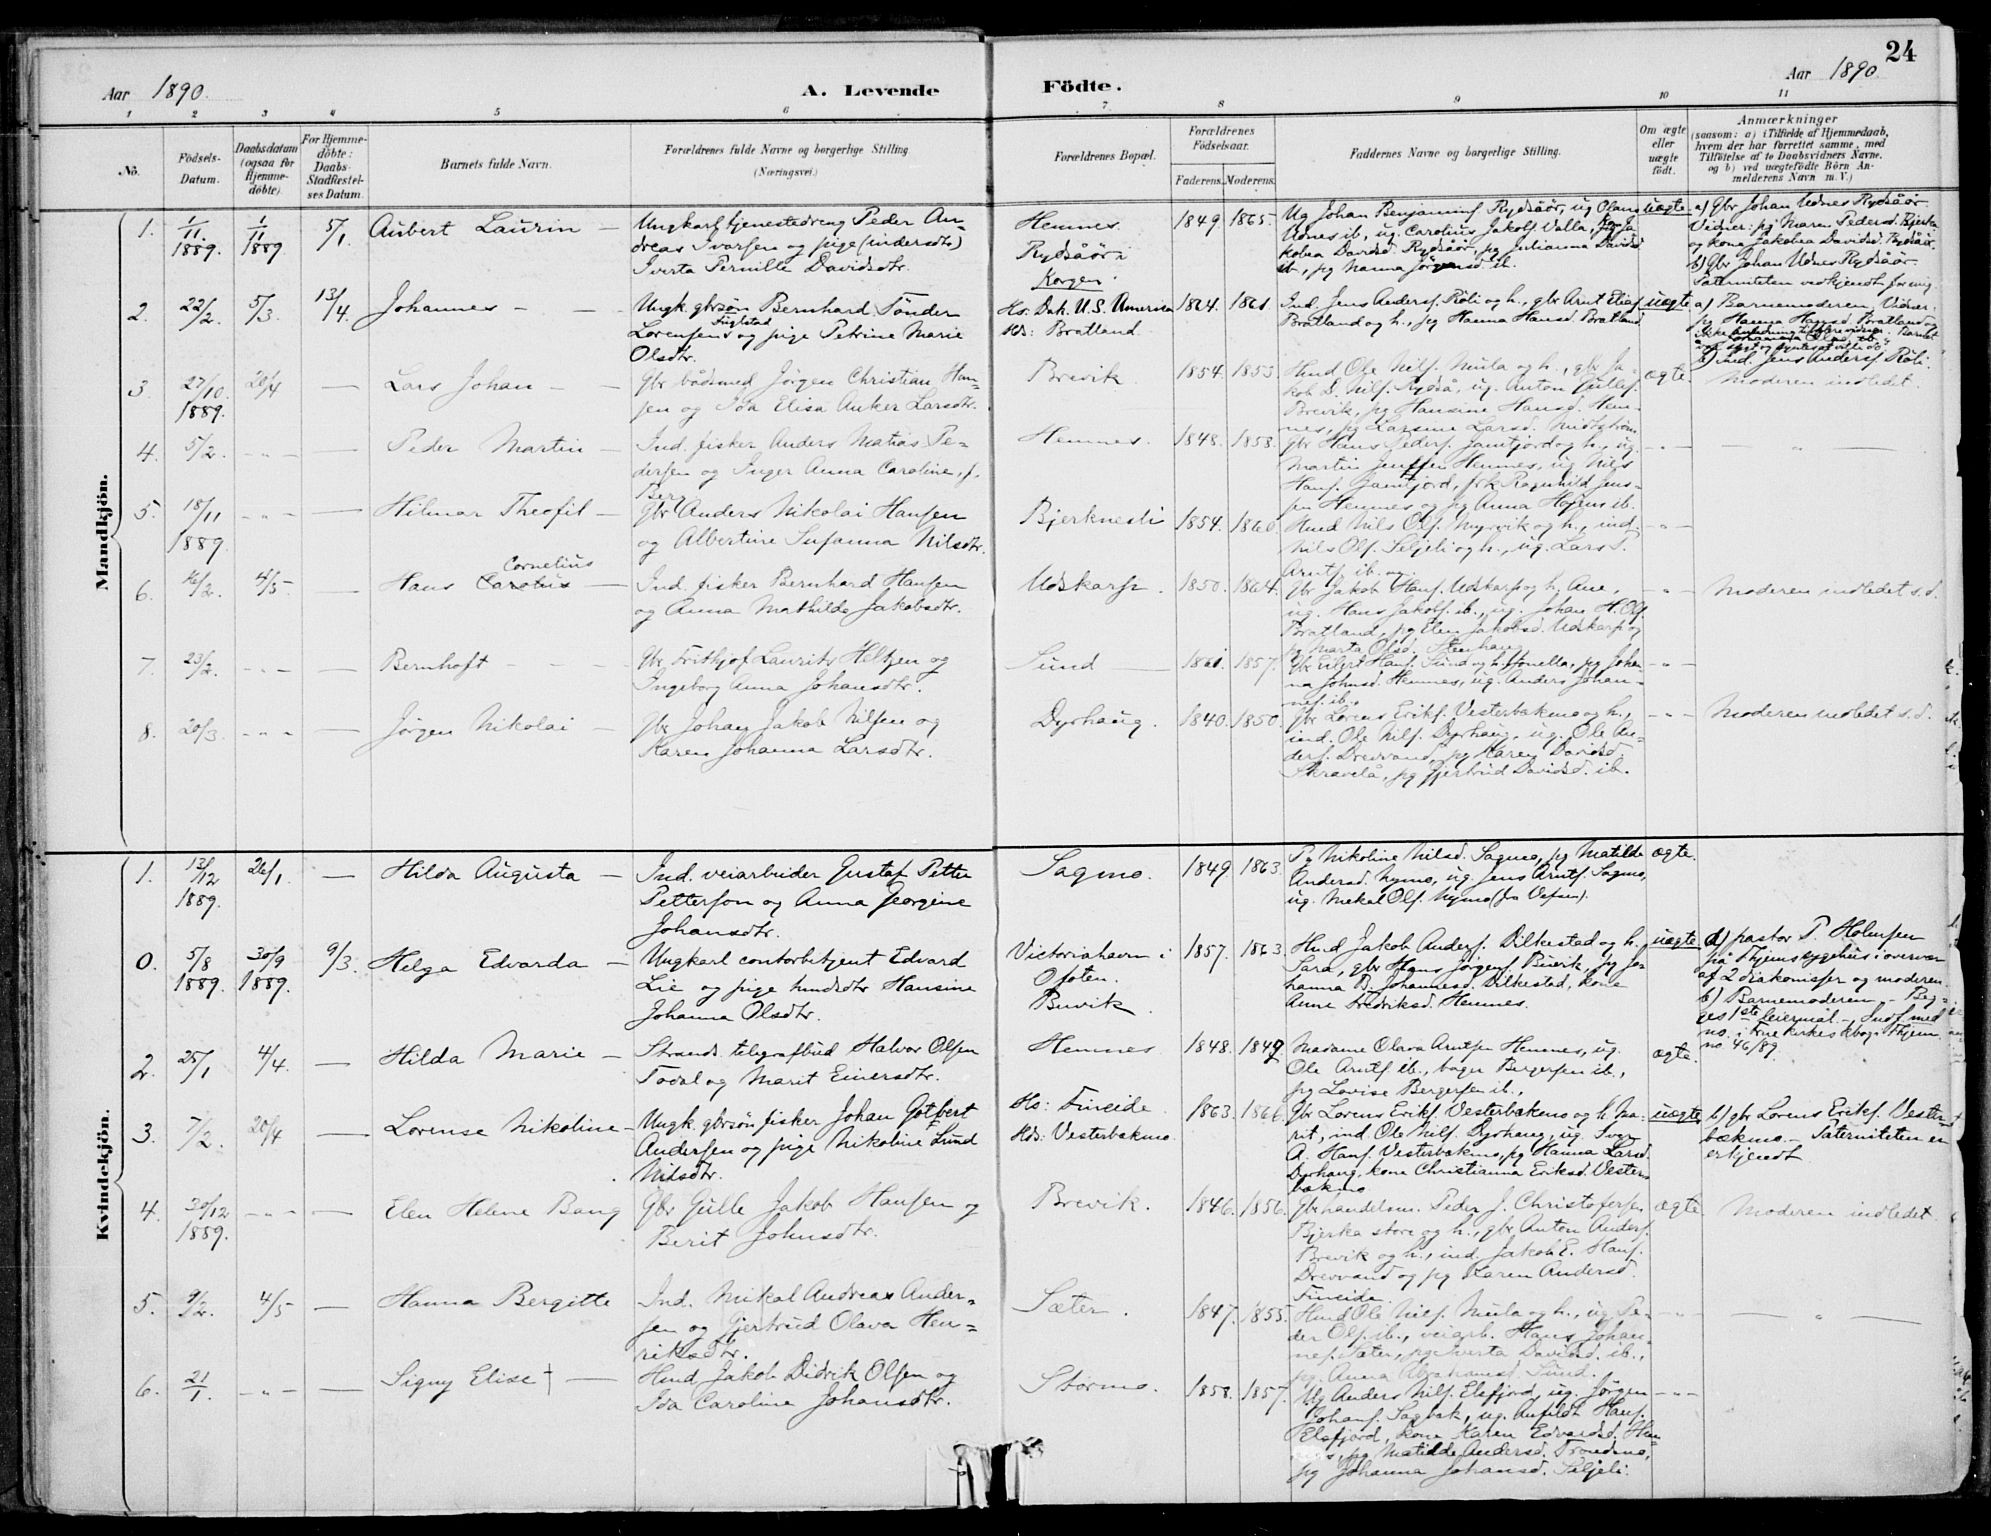 24
Aar 1890. A. Levende Födte. Aar 1890.
1 2 3 4 5 6 7 8 9 10 11
No. Födsels-Datum. Daabsdatum (ogsaa for Hjemmedöbte). For Hjemmedöbte: Daabs-Stadfæstelses Datum. Barnets fulde Navn. Forældrenes fulde Navne og borgerlige Stilling (Næringsvei.) Forældrenes Bopæl. Forældrenes Födselsaar. Faderens. Moderens. Faddernes Navne og borgerlige Stilling. Om ægte eller uægte födt. Anmærkninger (saasom: a) i Tilfælde af Hjemmedaab, hvem der har forrettet samme, med Tilföielse af to Daabsvidners Navne. og b) ved uægtefödte Börn Anmelderens Navn m. V.)
Mandkjön.
1. 1/11 1889. 1/11 1889 5/1 Aubert Laurin —
Ungkarl tjenestedreng Peder An-
dreas Ivarsen og pige (indersdtr)
Iverta Pernille Davidsdtr.
Hemnes.
Rydsåör i
Korgen.
1849. 1865.
Ug Johan Benjaminsf Rydsåör, ug Olaus
Udnes ib, ug. Carolius Jakobf. Valla, Ja-
kobea Davidsd. Rydsåör, pg Julianna Davidsd
ib., pg Nanna Jörgensd. ib.
uægte.
a) Gbr Johan Udnes Rydsåör.
Vidner: pg Maren Pedersd. Bjerka
og kona Jakobea Davidsd. Rydsåör.
b) Gbr Johan Udnes Rydsåör.
Paterniteten vedkjendt for mig.
2. 22/2. 5/3. 13/4. Johannes —
Ungk. gbrsøn Bernhard Tönder
Lorensen Fuglstad og pige Petrine Marie
Olsdtr.
Hs: Dak. U.S. America
Hds: Bratland.
1864. 1861.
Ind. Jens Andersf. Röli og h., gbr Arnt Eliasf
Bratland og h., pg Hanna Hansd. Bratland
uægte
a) Barnemoderen. Vidner:
pg Hanna Hansd. Bratland og
b) Ind. Jens Andersf. Röli.
3. 27/10. 1889. 20/4 — Lars Johan —
Gbr bådsmed Jörgen Christian Han-
sen og Ida Elisa Anker Larsdtr.
Brevik.
1854. 1853.
Hmd Ole Nilsf. Mula og h., gbr Ja-
kob D. Nilsf. Rydså, ug. Anton Gullesf.
Brevik, pg Hansine Hansd. Hem-
nes, pg Larsine Larsd. Midtström.
ægte.
Moderen indledet.
4. 5/2. - " - — Peder Martin —
Ind. fisker Anders Matias Pe-
dersen og Inger Anna Caroline, f.
Berg
Hemnes.
1848. 1858.
gbr Hans Pedersf. Jamtjord og h., ug.
Martin Jenssen Hemnes, ug Nils
Hansf. Jamtjord, frk Ragnhild Jens-
sen Hemnes og pg Anna Hagens ib.
- " - — " —
5. 18/11 1889. - " - — Hilmar Theofil —
Gbr Anders Nikolai Hansen
og Albertine Susanna Nilsdtr.
Bjerknesli
1854. 1860.
Hmd Nils Olsf. Myrvik og h., ind.
Nils Olsf. Seljeli og h., ug. Lars S.
Arntsf. ib.
- " -
6. 16/2. 4/5. — Hans Carolius Cornelius —
Ind. fisker Bernhard Hansen
og Anna Mathilde Jakobsdtr.
Udskarpen.
1850. 1864.
Gbr Jakob Hansf. Udskarp og h. Ane,
ug. Hans Jakobf. ib., ug. Johan H. Olsf.
Bratland, pg Elen Jakobsd. Udskarp og
pg Marta Olsd. Stenhaug.
- " -
Moderen indledet s.d.
7. 23/2. - " - — Bernhoft —
Gbr. Frithjof Laurits Heltzen og
Ingeborg Anna Johansdtr.
Sund —
1861. 1857.
Gbr Eilert Hansf. Sund og h. Jonella, pg Johan-
na Johnsd. Hemnes, ug. Anders Johan-
nesf. ib.
- " -
8. 20/3. - " - — Jörgen Nikolai —
Gbr Johan Jakob Nilsen og
Karen Johanna Larsdtr.
Dyrhaug.
1840. 1850.
Gbr Lorens Eriksf. Vesterbækmo og h.,
ind. Ole Nilsf. Dyrhaug, ug. Ole An-
dersf. Drevvand, pg Karen Davidsd.
Skravlå, pg Gjertrud Davidsd. ib.
- " -
Moderen indledet s.d.
Kvindekjön.
1. 13/12 1889. 26/1. — Hilda Augusta —
Ind. veiarbeider Gustaf Petter
Petterson og Anna Georgine
Johansdtr.
Sagmo.
1849. 1863.
Pg Nikoline Nilsd. Sagmo, pg Matilde
Andersd. Nymo, ug. Jens Arntsf. Sagmo,
ug. Mekal Olsf. Nymo (fra Vefsen).
ægte.
0. 5/8 1889. 30/9 1889. 9/3. Helga Edvarda —
Ungkarl contorbetjent Edvard
Lie og pige hmdsdtr Hansine
Johanna Olsdtr.
Victoriahavn i
Ofoten.
Buvik.
1857. 1863.
Hmd Jakob Andersf. Dilkestad og h.
Sara, gbr Hans Jörgensf. Buvik, pg Jo-
hanna B. Johannesd. Dilkestad, kone
Anne Fredriksd. Hemnes.
uægte
a) pastor P. Holmsen
på Thjems sygehus i overvær
af 2 diakonisser og moderen.
b) Barnemoderen. — Beg-
ges 1ste leiermål. — Indf. med
no. i Frue kirkes kbog Thjem
no. 46/89.
2. 25/1 4/4. — Hilda Marie —
Strands. telegrafbud Halvor Olsen
Todal og Marit Einersdtr.
Hemnes
1848. 1849
Madame Olava Arntsen Hemnes, ug.
Ole Arntsf ib., bager Bergersen ib.,
pg Lovise Bergersen ib.,
ægte.
3. 7/2. 20/4 — Lorense Nikoline —
Ungk. gbrsön fisker Johan Gotbert
Andersen og pige Nikoline Lund
Nilsdtr.
Hs: Fineide.
Hds: Vesterbækmo.
1863. 1866.
Gbr Lorens Eriksf. Vesterbækmo og h. Ma-
rit, ind. Ole Nilsf. Dyrhaug, ug. Ivar
A. Hansf. Vesterbækmo, pg Hanna Larsd.
Dyrhaug, kone Christianna Eriksd. Vester-
bækmo
uægte
b) gbr Lorens Eriksf. Vester-
bækmo. — Paterniteten er
erkjendt.
4. 30/12 1889. - " - — Elen Helene Bang
Gbr Gulle Jakob Hansen og
Berit Johnsdtr.
Brevik.
1846. 1856.
Gbr handelsm. Peder J. Christofersen
Bjerka store og h., gbr Anton Andersf.
Brevik og h., ind. Jakob E. Hansf.
Drevvand og pg Karen Andersd.
Fineide.
ægte
Moderen indledet.
5. 9/2. 4/5 — Hanna Bergitte
Ind. Mikal Andreas Ander-
sen og Gjertrud Olava Hen-
riksdtr.
Sæter.
1847. 1855.
Hmd Ole Nilsf. Mula og h., ug. Pe-
der Olsf. ib., veiarb. Hans Johan-
nesf. Sæter, pg Iverta Davidsd. ib.,
pg. Anna Abrahamsd. Sund.
- " - — " —
6. 21/1. - " - — Signy Elise † —
Hmd. Jakob Didrik Olsen og
Ida Caroline Johansdtr.
Stormo.
1858. 1857.
Ug Anders Nilsf. Elsfjord, ug. Jörgen
Johansf. Sagbak, ug. Anfeldt Hansf.
Elsfjord, kone Karen Edvardsd. Hem-
nes, pg Matilde Andersd. Trondsmo,
pg Johanna Johansd. Seljeli.
- " -